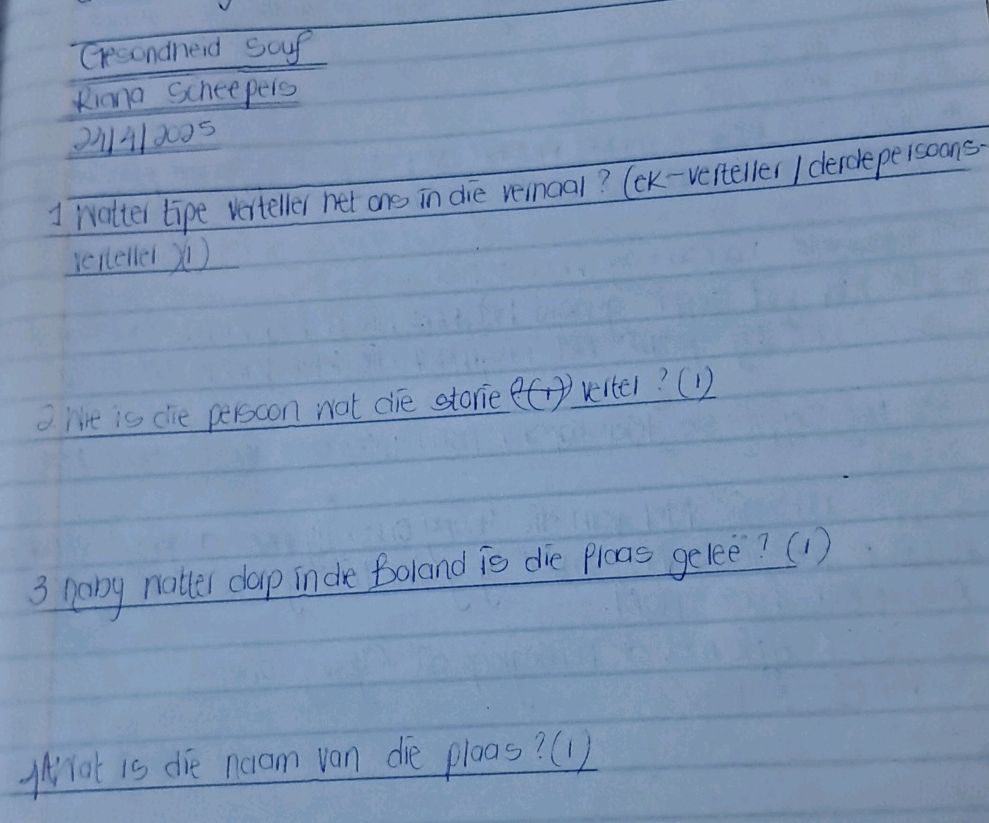 Gesondheid Souf
Riana Scheepers
24/4/2025
1 Watter tipe verteller het ons in die verhaal? (ek-verteller / derdepersoons-
verteller)(1)
2 Wie is die persoon wat die storie vertel? (1)
3 naby watter dorp in die Boland is die plaas geleë? (1)
4 Wat is die naam van die plaas? (1)